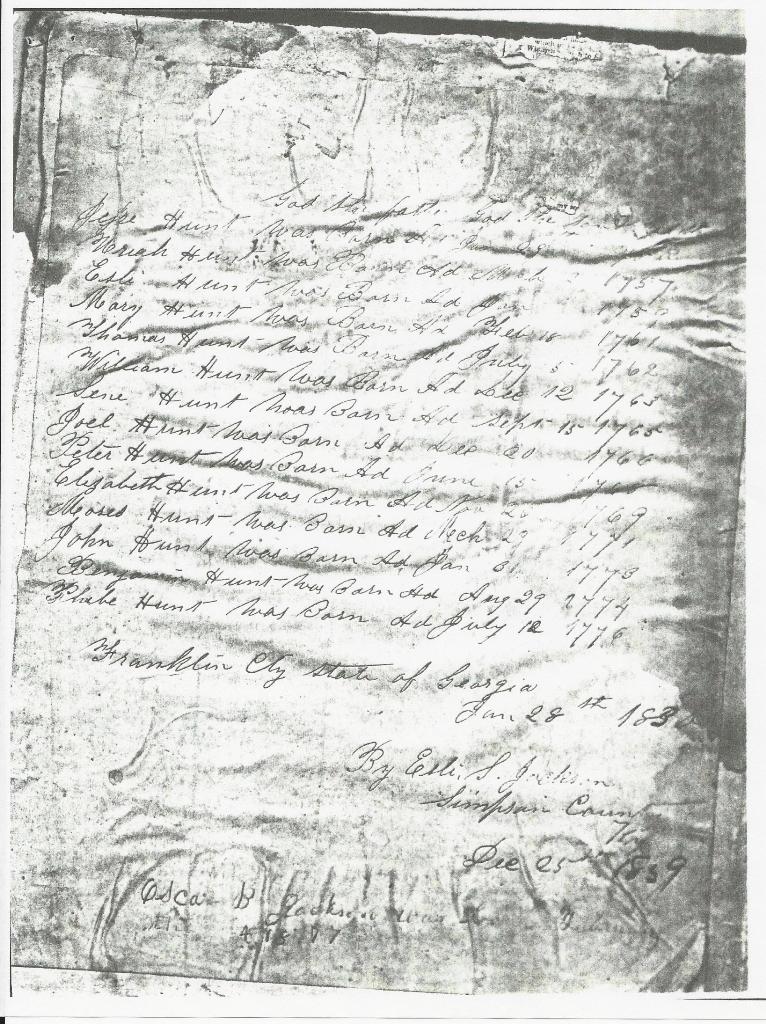 God the God the
Jesse Hunt Was Born
Uriah Hunt Was Born Ad March 1757
Esli Hunt Was Born Ad Jan
Mary Hunt Was Born Ad Feb 18 1761
Thomas Hunt Was Born Ad July 5 1762
William Hunt Was Born Ad Dec 12 1763
Hunt Was Born Ad Sept 15 1765
Joel Hunt Was Born Ad Dec 20 1766
Peter Hunt Was Born Ad June 15
Elizabeth Hunt Was Born Ad Nov 1769
Moses Hunt Was Born Ad Mch 29 1771
John Hunt Was Born Ad Jan 1773
Benjamin Hunt Was Born Ad Aug 29 1774
Phebe Hunt Was Born Ad July 12 1776
Franklin Cty State of Georgia
Jan 28th
By Esli S. Jackson
Simpson
Dec 25 1839
Jackson was